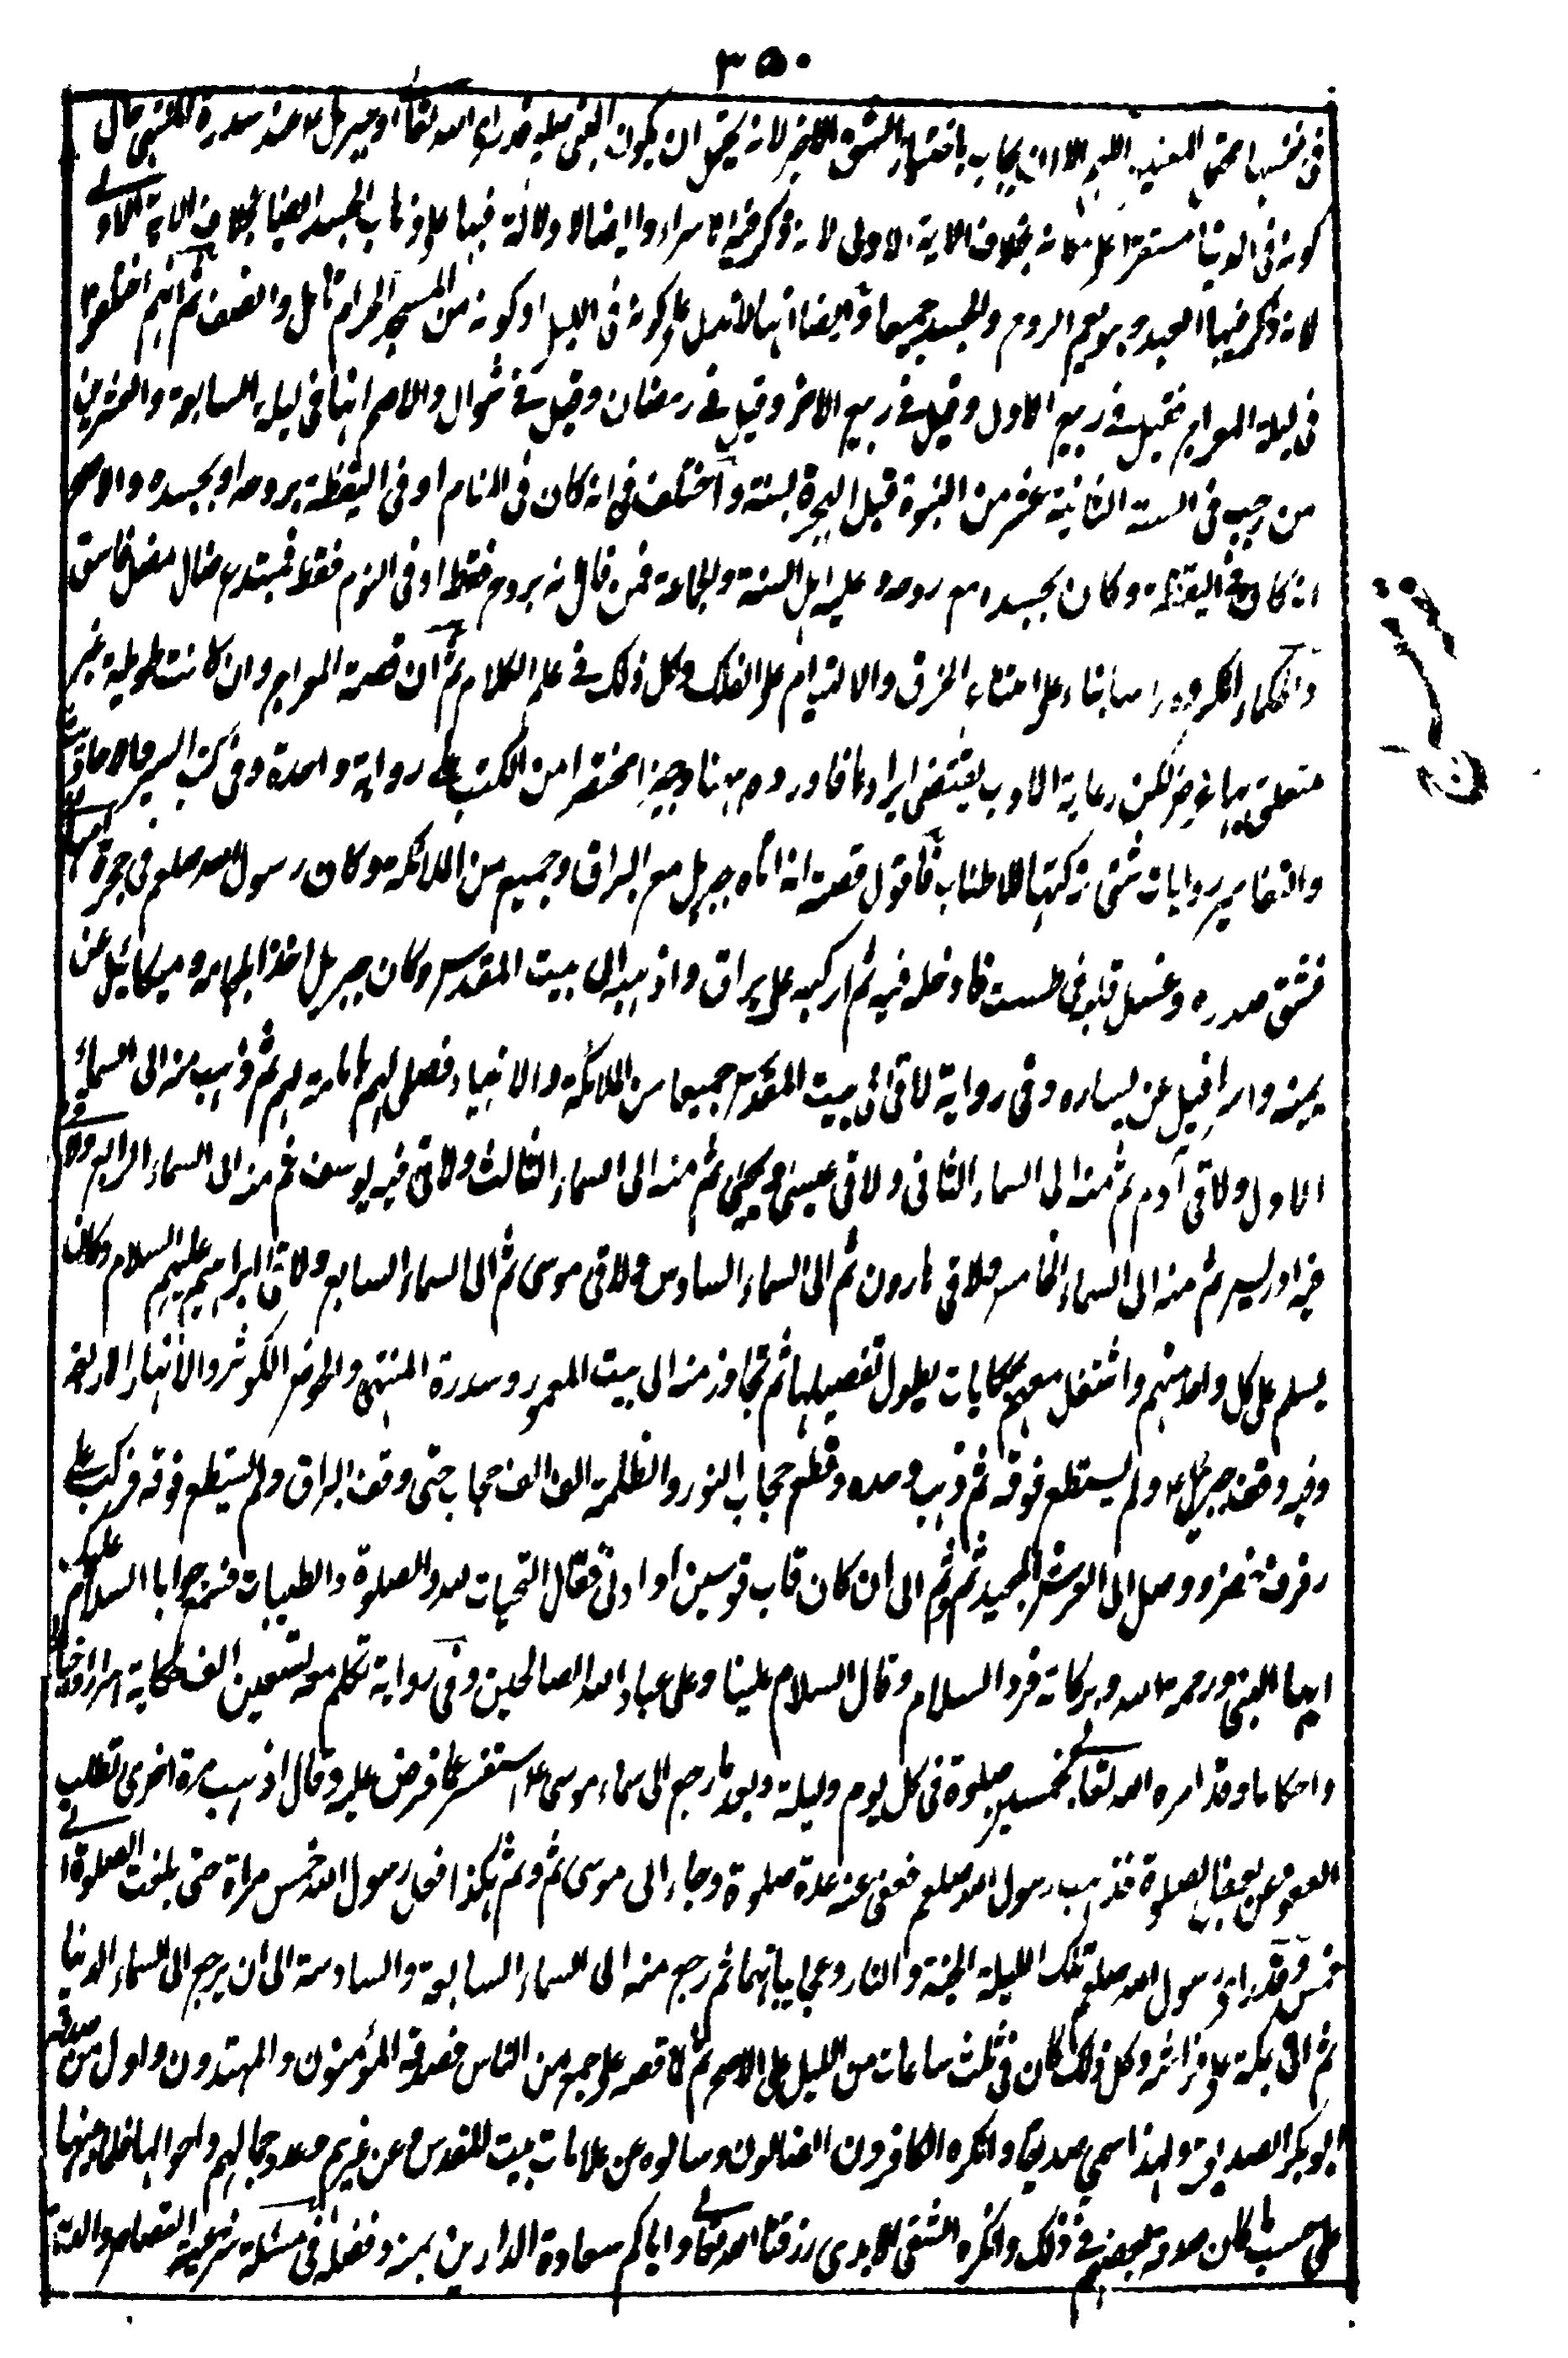 ٣٥٠
في نفسها محتمل المعنيين اللهم الا ان يجاب باختيار الشق الاخير لانه يحتمل ان يكون النبي عليه قد راى الله تعالى او جبريل ۴ عند سدرة المنتهى حال
كونه في الدنيا مستقرا على مكانه بخلاف الاية الاولى لانه ذكر فيه الاسراء وايضا لا دلالة فيها على ذهاب الجسد ايضا بخلاف الاية الاولى
لانه ذكر فيها العبد وهو يعم الروح والجسد جميعا وايضا انها لا تدل على كونه في الليل او كونه من المسجد الحرام تامل وانصف ثم انهم اختلفوا
في ليلة المعراج فقيل في ربيع الاول وقيل في ربيع الاخر وقيل في رمضان وقيل في شوال والاصح انها في ليلة السابعة والعشرين
من رجب في السنة الثانية عشر من النبوة قبل الهجرة بسنة واختلف في انه كان في المنام او في اليقظة بروحه او بجسده والاصح
انه كان في اليقظة وكان بجسده مع روحه وعليه اهل السنة والجماعة فمن قال انه بروح فقط او في النوم فقط فمبتدع ضال مضل فاسق
والحكماء انكروه راسا بناء على امتناع الخرق والالتيام على الفلك وكل ذلك في علم الكلام ثم ان قصة المعراج وان كانت طويلة غير
متعلق بها غرض لكن رعاية الادب يقتضي ايرادها فاورد وهم هنا وجيزا مختصرا من الكتب على رواية واحدة وفي كتب السير والاحاديث
والتفاسير روايات شتى تركتها للاطناب فاقول قصته انه اتاه جبريل مع البراق وجميع من الملائكة وكان رسول الله صلعم في حجرة امهانى
فشق صدره وغسل قلبه في طست فادخله فيه ثم اركبه على براق واذهبه الى بيت المقدس وكان جبريل اخذ الجامه وميكائيل عن
يمينه واسرافيل عن يساره وفي رواية لاقى في بيت المقدس جميعا من الملائكة والانبياء فصلى لهم بامامة لهم ثم ذهب منه الى السماء
الاول ولاقى آدم ثم منه الى السماء الثاني ولاقى عيسى ويحيى ثم منه الى السماء الثالث ولاقى فيه يوسف ثم منه الى السماء الرابع ولاقى
فيه ادريس ثم منه الى السماء الخامس ولاقى هارون ثم الى السماء السادس ولاقى موسى ثم الى السماء السابع ولاقى ابراهيم عليهم السلام وكان
يسلم على كل واحد منهم واشتغل معهم بحكايات يطول تفصيلها ثم تجاوز منه الى بيت المعمور وسدرة المنتهى والحوض الكوثر والانهار الاربعة
وفيه وقف جبريل ۴ ولم يستطع فوقه ثم ذهب وحده وقطع حجاب النور والظلمة الف الف حجاب حتى وقف البراق ولم يستطع فوقه فركب على
رفرف خضر ووصل الى العرش المجيد ثم وثم الى ان كان قاب قوسين او ادنى فقال التحيات لله والصلوة والطيبات فسمع جوابا السلام عليك
ايها النبي ورحمة الله وبركاته فرد السلام وقال السلام علينا وعلى عباد الله الصالحين وفي رواية تكلم معه تسعين الف حكاية اسرارا
واحكاما وقد امره الله تعالى بخمسين صلوة في كل يوم وليلة وبعد ما رجع الى سماء موسى على استفسر عما فرض عليه وقال اذهب مرة اخرى تطلب
العفو عن بعض الصلوة فذهب رسول الله صلعم فعفى عنه عدة صلوة وجاء الى موسى ثم وثم هكذا فعل رسول الله خمس مراة حتى بلغت الصلوة الى
خمس وقد راى رسول الله صلعم تلك الليلة الجنة والنار وعجايباتهما ثم رجع منه الى السماء السابعة والسادسة الى ان يرجع الى السماء الدنيا
ثم الى مكة على فراشه وكل ذلك كان في ثلث ساعات من الليل على الاصح ثم لا قصه على جمع من الناس فصدقه المؤمنون والمهتدون واول من صدقه
ابو بكر الصديق ولهذا سمي صديقا وانكره الكافرون الضالون وسالوه عن علامات بيت المقدس وعن غيرهم وعدد جمالهم واحوالها
على حسب ما كان صدقه بعضهم في ذلك وانكره الشقي الابدى رزقنا الله تعالى واياكم سعادة الدارين بمنه وفضله في مسئلة شرعية القصاص